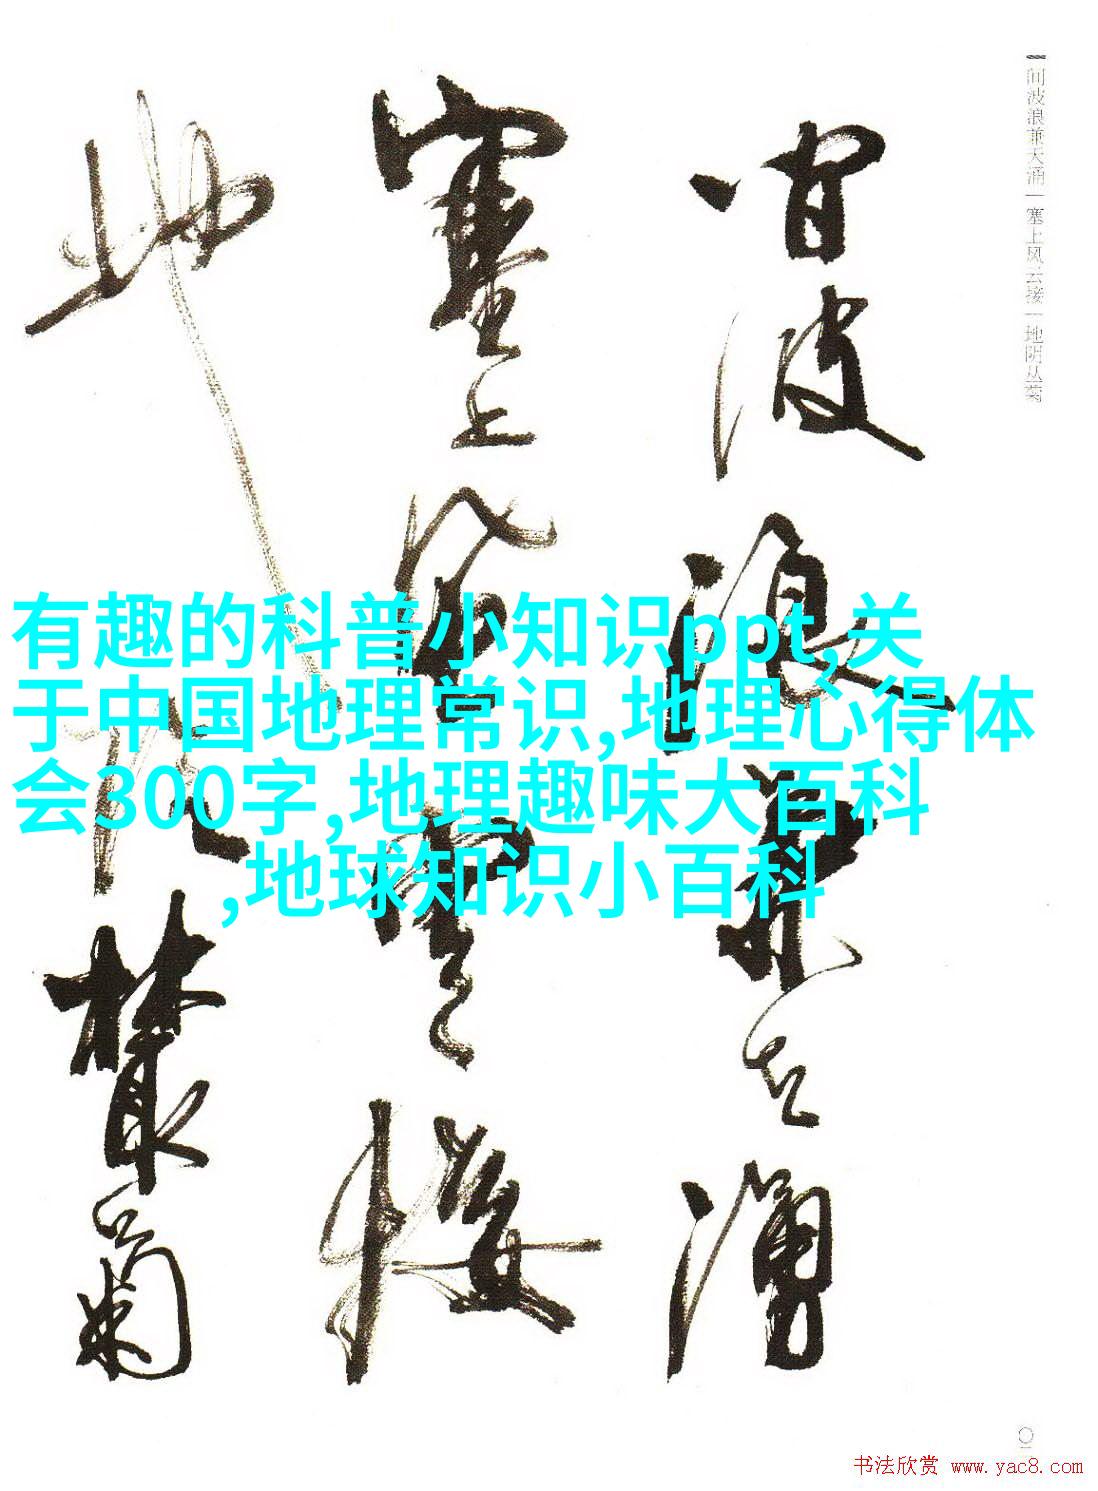 间波浪兼天涌一塞上风云接一地阴丛菊
间波浪兼天涌
塞上风云接
地阴丛菊
有趣的科普小知识ppt,关
于中国地理常识,地理心得体
会300字,地理趣味大百科
,地球知识小百科
书法欣赏 www.yac8.com